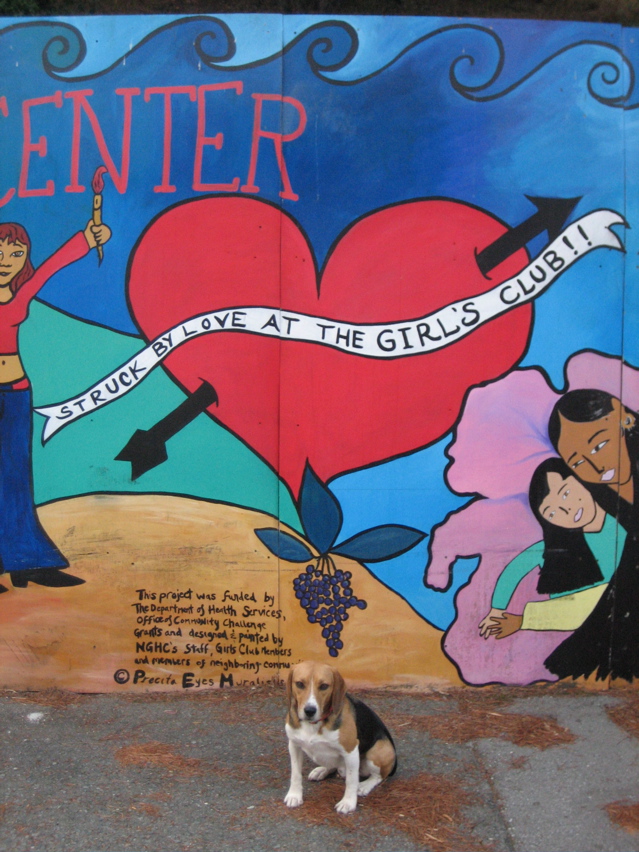 CENTER
STRUCK BY LOVE AT THE GIRL'S CLUB!!
This project was funded by
The Department of Health Services,
Office of Community Challenge
Grants and designed & painted by
NGHC's Staff, Girls Club Members
and members of neighboring
© Precita Eyes